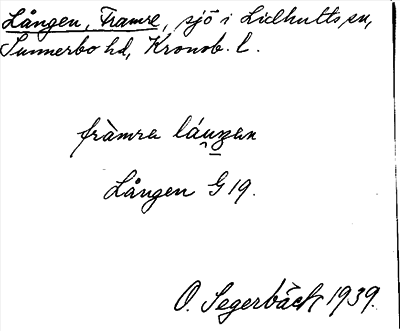 Lången, Framre, sjö i Lidhults sn,
Sunnerbo hd, Kronob. l.
fràmra láuŋan
Lången G 19.
O. Segerbäck 1939.